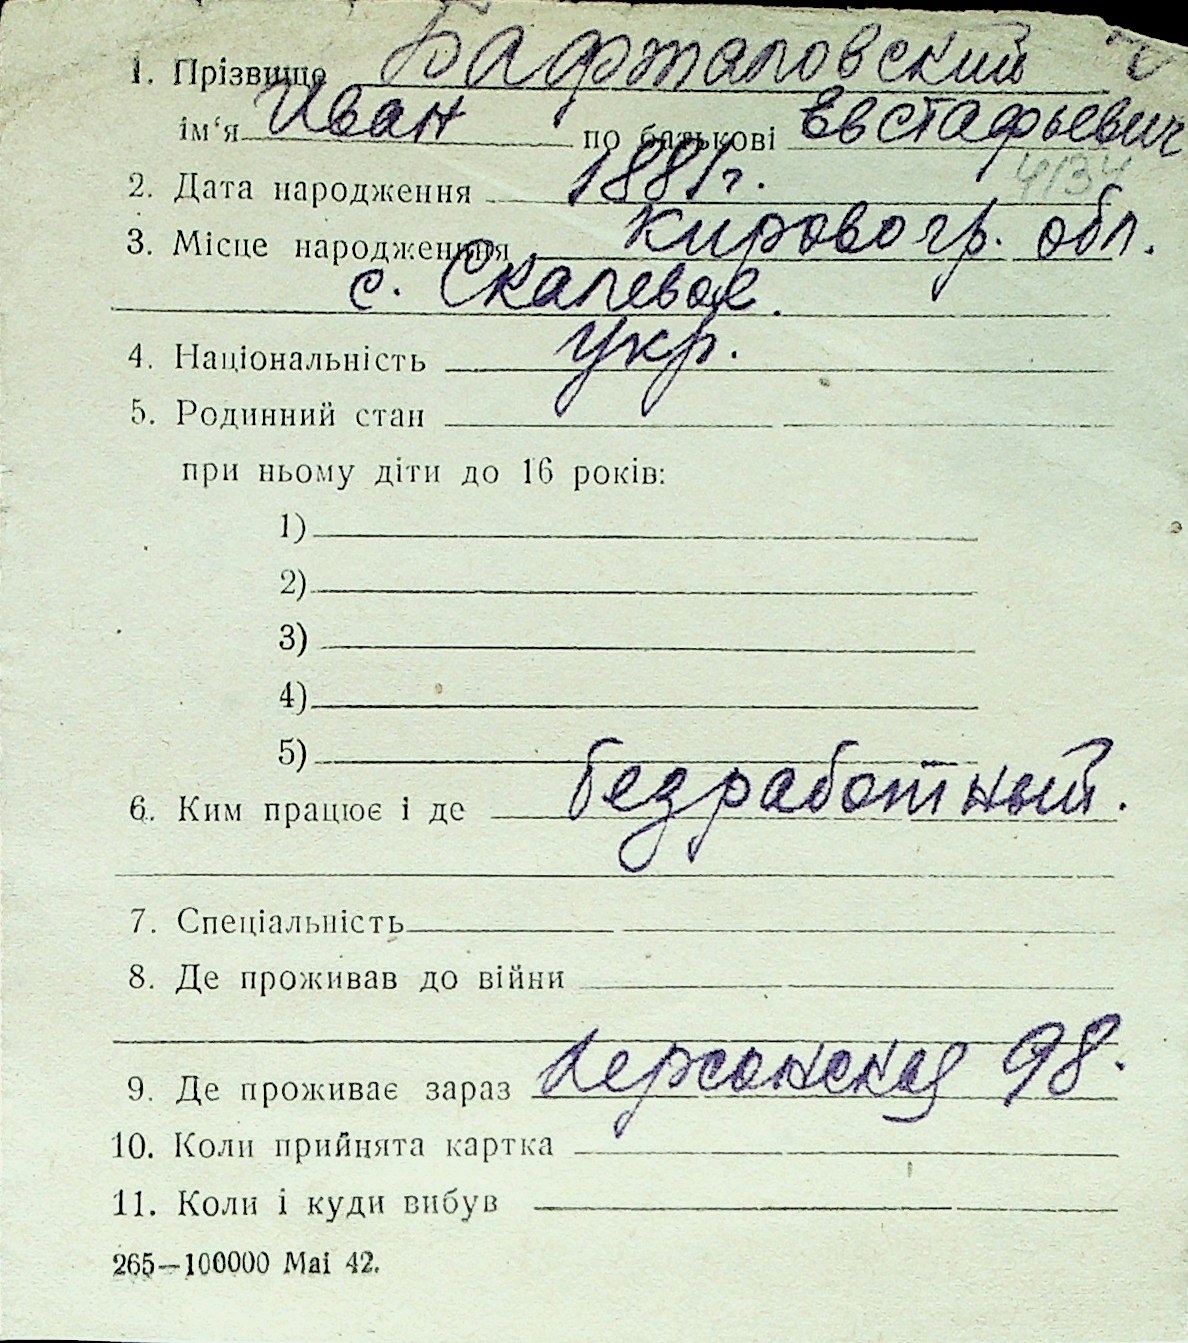 1. Прізвище Бафталовский
ім‘я Иван по батькові Евстафьевич
4134
2. Дата народження 1881 г.
3. Місце народження Кировогр. обл.
с. Скалевое.
4. Національність укр.
5. Родинний стан
при ньому діти до 16 років:
1)
2)
3)
4)
5)
6. Ким працює і де безработный.
7. Спеціальність
8. Де проживав до війни
9. Де проживає зараз Херсонская 98.
10. Коли прийнята картка
11. Коли і куди вибув
265—100000 Mai 42.